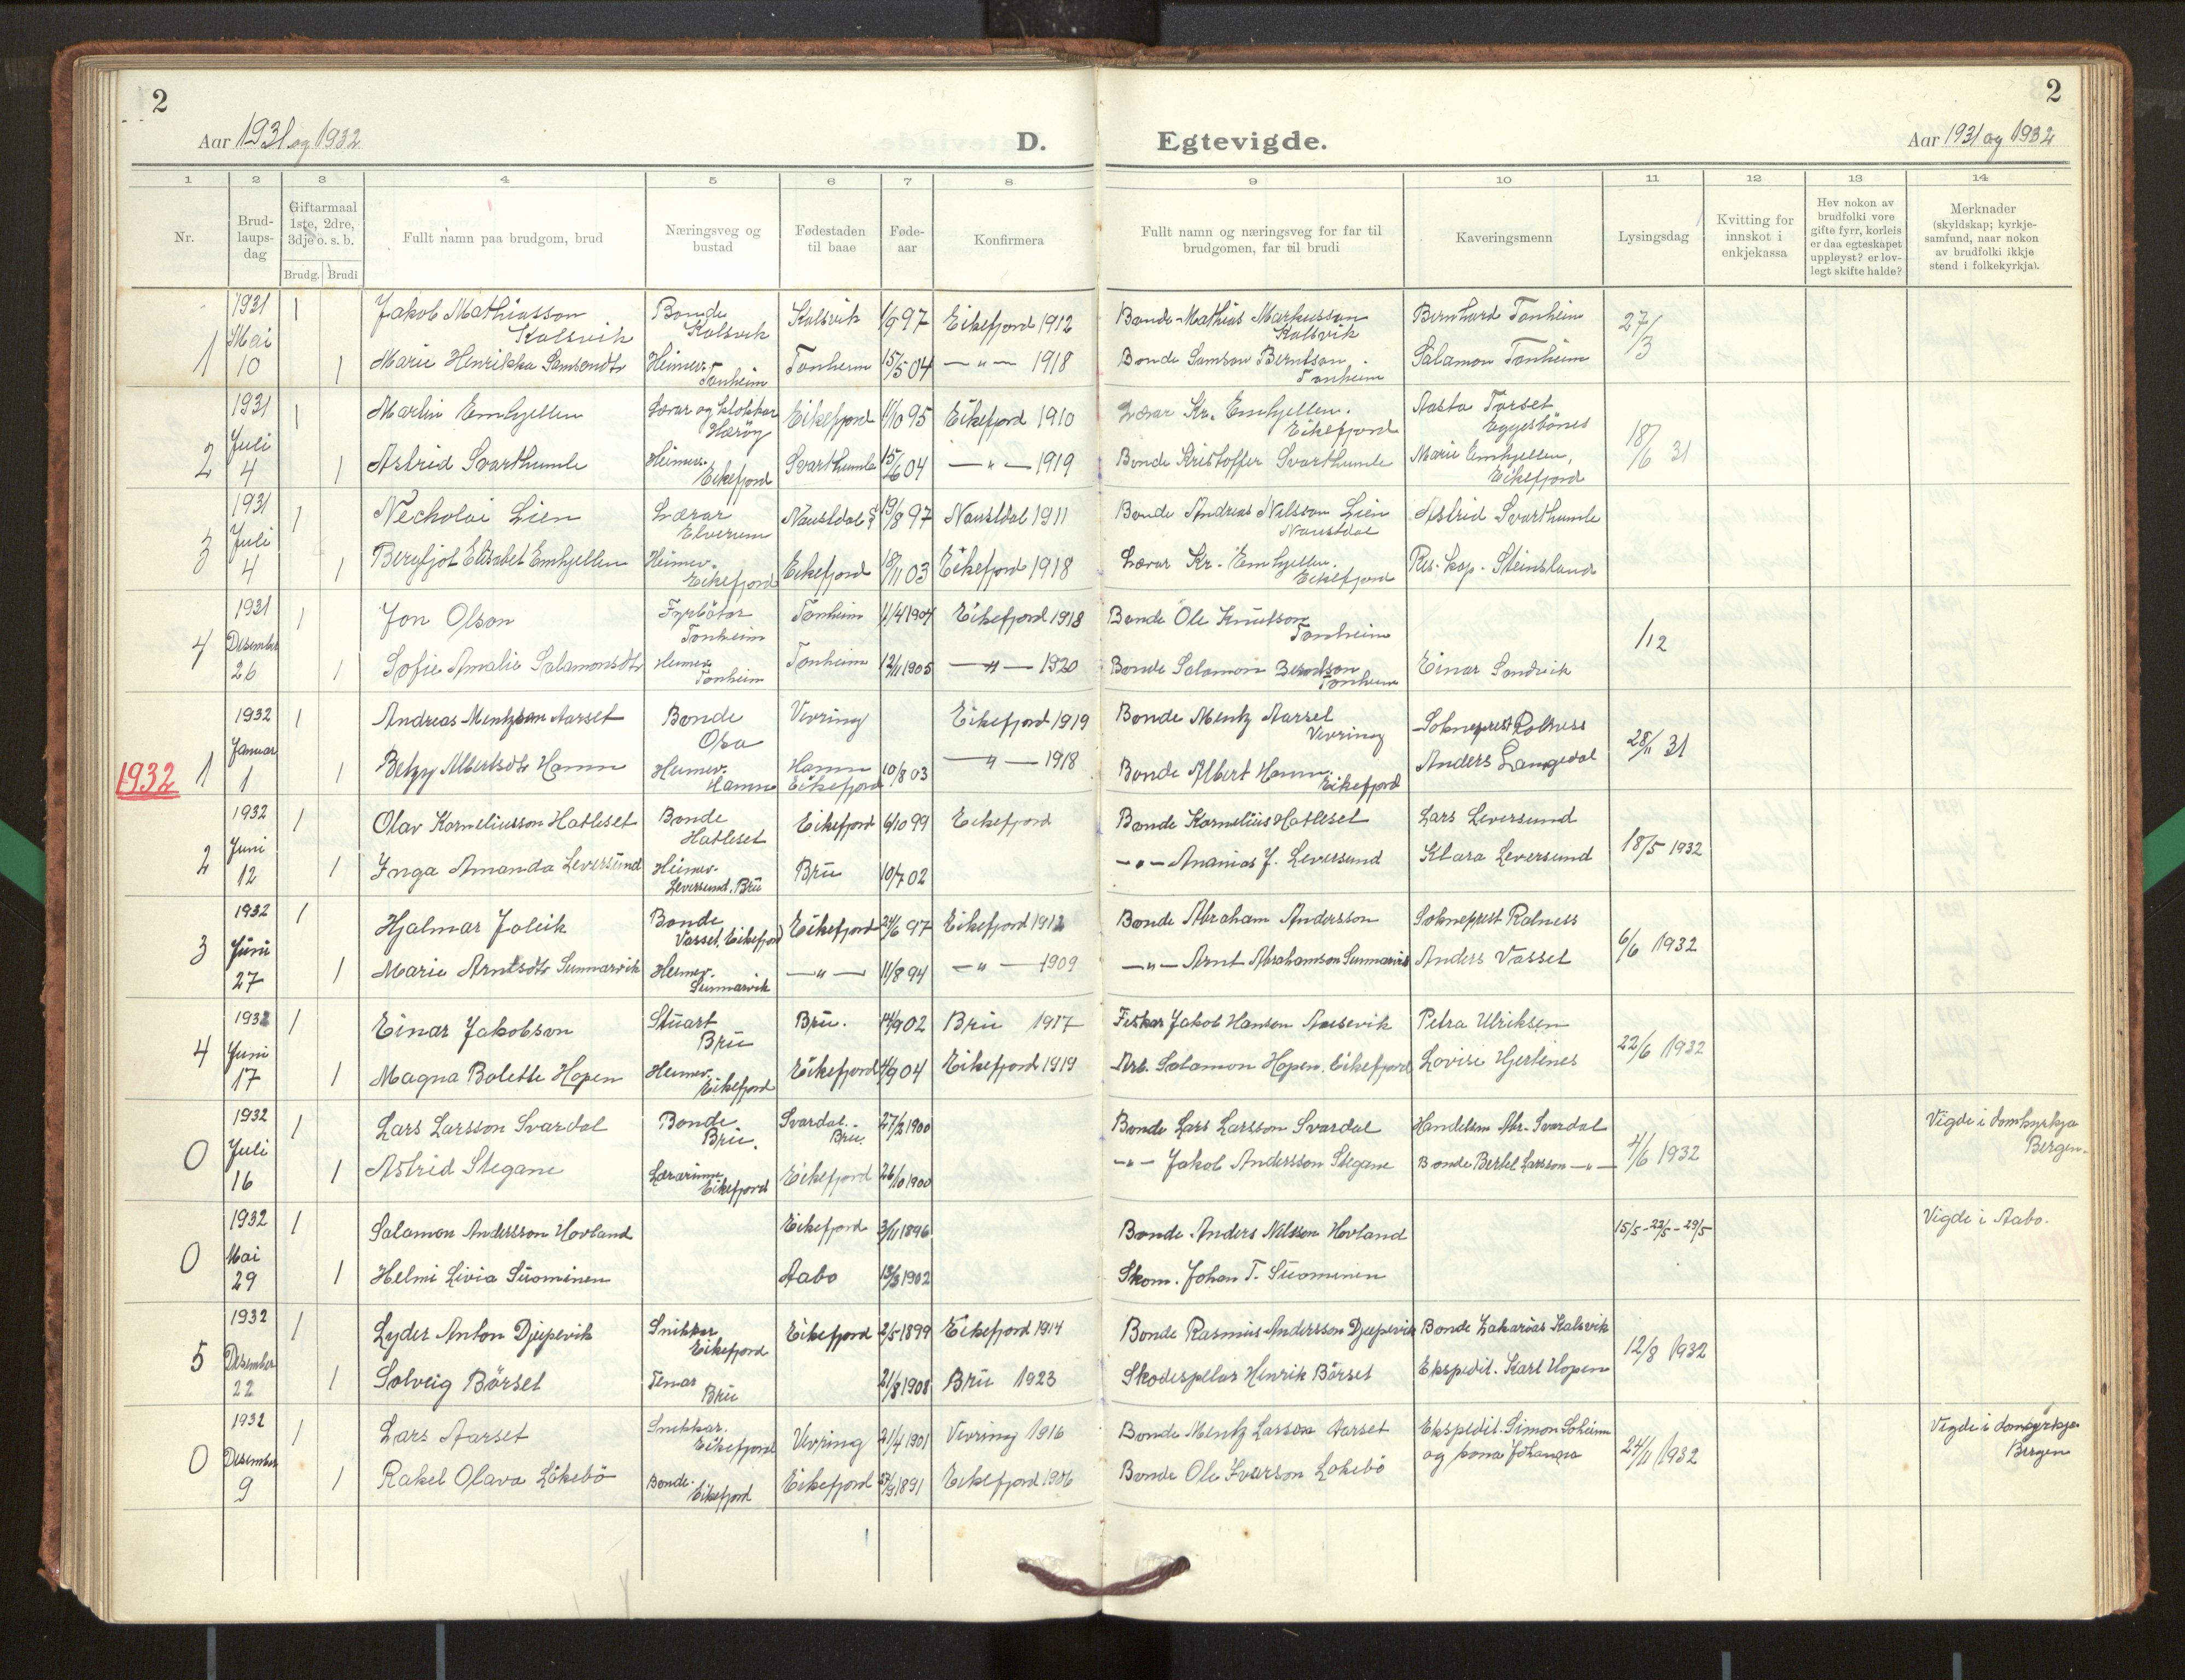 2
Aar 1931 og 1932
D.
Egtevigde.
Aar 1931 og 1932
2
1 2 3 4 5 6 7 8 9 10 11 12 13 14
Nr.
Brud-
laups-
dag
Giftarmaal
1ste, 2dre,
3dje o. s. b.
Brudg. Brudi
Fullt namn paa brudgom, brud
Næringsveg og
bustad
Fødestaden
til baae
Føde-
aar
Konfirmera
Fullt namn og næringsveg for far til
brudgomen, far til brudi
Kaveringsmenn
Lysingsdag
Kvitting for
innskot i
enkjekassa
Hev nokon av
brudfolki vore
gifte fyrr, korleis
er daa egteskapet
uppleyst? er lov-
legt skifte halde?
Merknader
(skyldskap; kyrkje-
samfund, naar nokon
av brudfolki ikkje
stend i folkekyrkja).
1 1931 Mai 10
1 Jakob Mathiasson Kalsvik Bonde Kalsvik Kalsvik 1/9 97 Eikefjord 1912 Bonde Mathias Markusson Kalsvik Bernhard Tonheim 27/3
1 Marie Henrikka Samsondtr Heimev. Tonheim Tonheim 15/5 04 —"— 1918 Bonde Samson Berntson Tonheim Salamon Tonheim
2 1931 Juli 4
1 Martin Emhjellen Lærar og klokkar Herøy Eikefjord 11/10 95 Eikefjord 1910 Lærar Kr. Emhjellen. Eikefjord Aasta Torset Eggesbönes 18/6 31
1 Astrid Svarthumle Heimev. Eikefjord Svarthumle 15/6 04 —"— 1919 Bonde Kristoffer Svarthumle Marie Emhjellen, Eikefjord
3 1931 Juli 4
1 Necholai Lien Lærar Elverum Naustdal 19/8 97 Naustdal 1911 Bonde Andreas Nilsson Lien Naustdal Astrid Svarthumle
1 Bergljot Elisabet Emhjellen Heimev. Eikefjord Eikefjord 18/11 03 Eikefjord 1918 Lærar Kr. Emhjellen. Eikefjord Res. kap. Steinsland
4 1931 Desember 26
1 Jon Olson Fyrbötar Tonheim Tonheim 11/4 1904 Eikefjord 1918 Bonde Ole Knutson Tonheim 1/12
1 Sofie Amalie Salamonsdtr Heimev. Tonheim Tonheim 12/11 1905 —"— 1920 Bonde Salamon Berntson Tonheim Einar Sandvik
1932 1 1932 Januar 1
1 Andreas Mentzson Aarset Bonde Osa Vevring Eikefjord 1919 Bonde Mentz Aarset Vevring Sokneprest Rolness 28/11 31
1 Betzy Albertsdtr Hamn Heimev. Hamn Hamn Eikefjord 10/8 03 —"— 1918 Bonde Albert Hamn. Eikefjord Anders Langedal
2 1932 Juni 12
1 Olav Korneliusson Hatleset Bonde Hatleset Eikefjord 6/10 99 Eikefjord Bonde Kornelius Hatleset Lars Leversund 18/5 1932
1 Inga Amanda Leversund Heimev. Leversund. Bru Bru 10/7 02 —"— Ananias J. Leversund Klara Leversund
3 1932 Juni 27
1 Hjalmar Folvik Bonde Vasset. Eikefjord Eikefjord 24/6 97 Eikefjord 1912 Bonde Abraham Andersson Sokneprest Rolness 6/6 1932
1 Marie Arntsdtr Sunnarvik Heimev. Sunnarvik —"— 11/8 94 —"— 1909 —"— Arnt Abrahamson Sunnarvik Anders Vasset
4 1932 Juni 17
1 Einar Jakobson Stuart Bru Bru. 14/9 02 Bru 1917 Fiskar Jakob Hansen Petra Ulriksen 22/6 1932
1 Magna Bolette Hopen Heimev. Eikefjord Eikefjord 4/9 04 Eikefjord 1919 Arb. Salamon Hopen. Eikefjord Lovise Hjertenes
0 1932 Juli 16
1 Lars Larsson Svardal Bonde Bru. Svardal. Bru. 27/2 1900 Bonde Lars Larsson Svardal Handelsm Abr. Svardal 4/6 1932 Vigde i domkyrkja Bergen.
1 Astrid Stegane Lærarinne Eikefjord Eikefjord 26/10 1900 —"— Jakob Andersson Stegane Bonde Bertel Larsson —"—
0 1932 Mai 29
1 Salamon Andersson Hovland Eikefjord 3/11 1896 Bonde Anders Nilsson Hovland 15/5 - 22/5 - 29/5 Vigde i Aabo.
1 Helmi Livia Suominen Aabo 13/3 1902 Skom. Johan T. Suominen
5 1932 Desember 22
1 Lyder Anton Djupevik Snikkar Eikefjord Eikefjord 2/5 1899 Eikefjord 1914 Bonde Rasmus Andersson Djupevik Bonde Zakarias Kalsvik 12/8 1932
1 Solveig Börset Tenar Bru 21/8 1908 Bru 1923 Skodespelar Henrik Börset Ekspedit. Karl Hopen
0 1932 Desember 9
1 Lars Aarset Snikkar. Eikefjord Vevring 21/4 1901 Vevring 1916 Bonde Mentz Larsson Aarset Ekspedit. Simon Soheim og kona Johanna 24/11 1932 Vigde i domkyrkja Bergen
1 Rakel Olava Lökebö Bonde. Eikefjord Eikefjord 27/9 1891 Eikefjord 1906 Bonde Ole Ivarson Lökebö